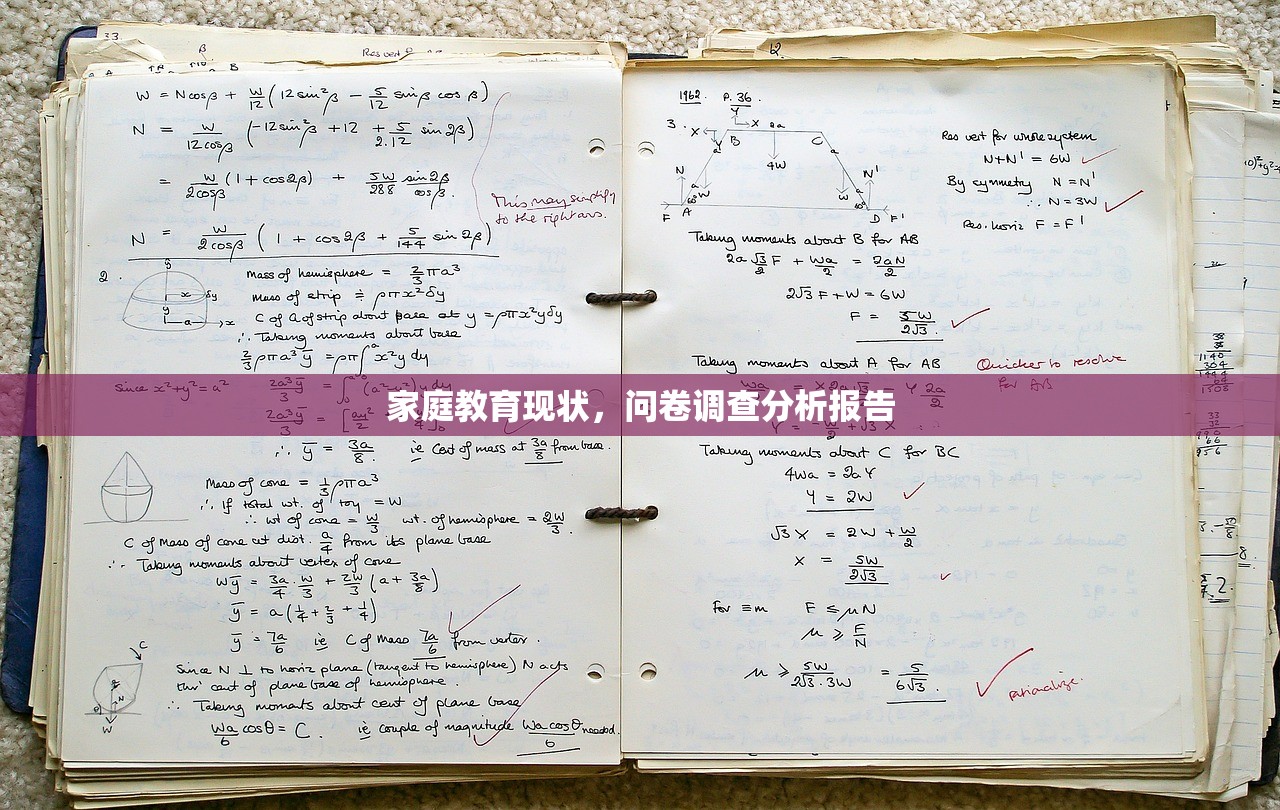 33.
β
Res vert
W = N cosβ + W/12 (12 sin²β − 5/12 sinβ cosβ)
N = W/12cosβ (−12 sin²β + 12 + 5/2.12 sin 2β)
= W/2cosβ (1 + cos2β) + 5W/288 sin2β/cosβ.
This may simplify
to the right ans.
N = W/2cosβ (1 + cos2β + 5/144 sin 2β)
2.
Mass of hemisphere = 2/3 πa³
Mass of strip ≑ ρπx²δy
C of G of strip about base at y = ρπx²yδy
∴ Taking moments about base
2/3 ρπa³ȳ = ρπ∫ᵃ₀ x²y dy
Since x²+y² = a²
家庭教育现状，问卷调查分析报告
∴ ȳ = 3a/8. ie Cent of mass at 3a/8 from base.
Mass of cone = 1/3 ρπa³
∴ If total wt. of toy = W
∴ wt of cone = W/3 wt. of hemisphere = 2W/3.
C of Mass of cone at dist. a/4 from its plane base
∴ Taking moments about vertex of cone
Wȳ = 3a/4 · W/3 + 2W/3 (a + 3a/8)
ȳ = a(1/4 + 2/3 + 1/4)
ȳ = 7a/6 ie C of Mass 7a/6 from vertex.
Since N ⊥ to horiz plane (tangent to hemisphere) N acts
thro' cent of plane base of hemisphere.
∴ Taking moments about cent of plane base
Wa/6 cosθ = C. ie couple of magnitude Wa cosθ/6 needed.
1962. P. 36.
3.
Res vert for whole system
N+N' = 6W
By symmetry N = N'
∴ N = 3W
Res. horiz F = F'
Taking moments about B for AB
2a √3/2 F + Wa/2 = 2aN/2
2√3 F + W = 6W
F = 5W/2√3.
Taking moments about A for AB
Quicker to resolve
for AB
Taking moments about C for BC
4Wa = 2aY
Y = 2W
√3 X = 2W + W/2
X = 5W/2√3
For ≡m F ≤ μN
μ ≥ F/N
μ ≥ 5W/2√3.3W = 5/6√3.
rationalize.